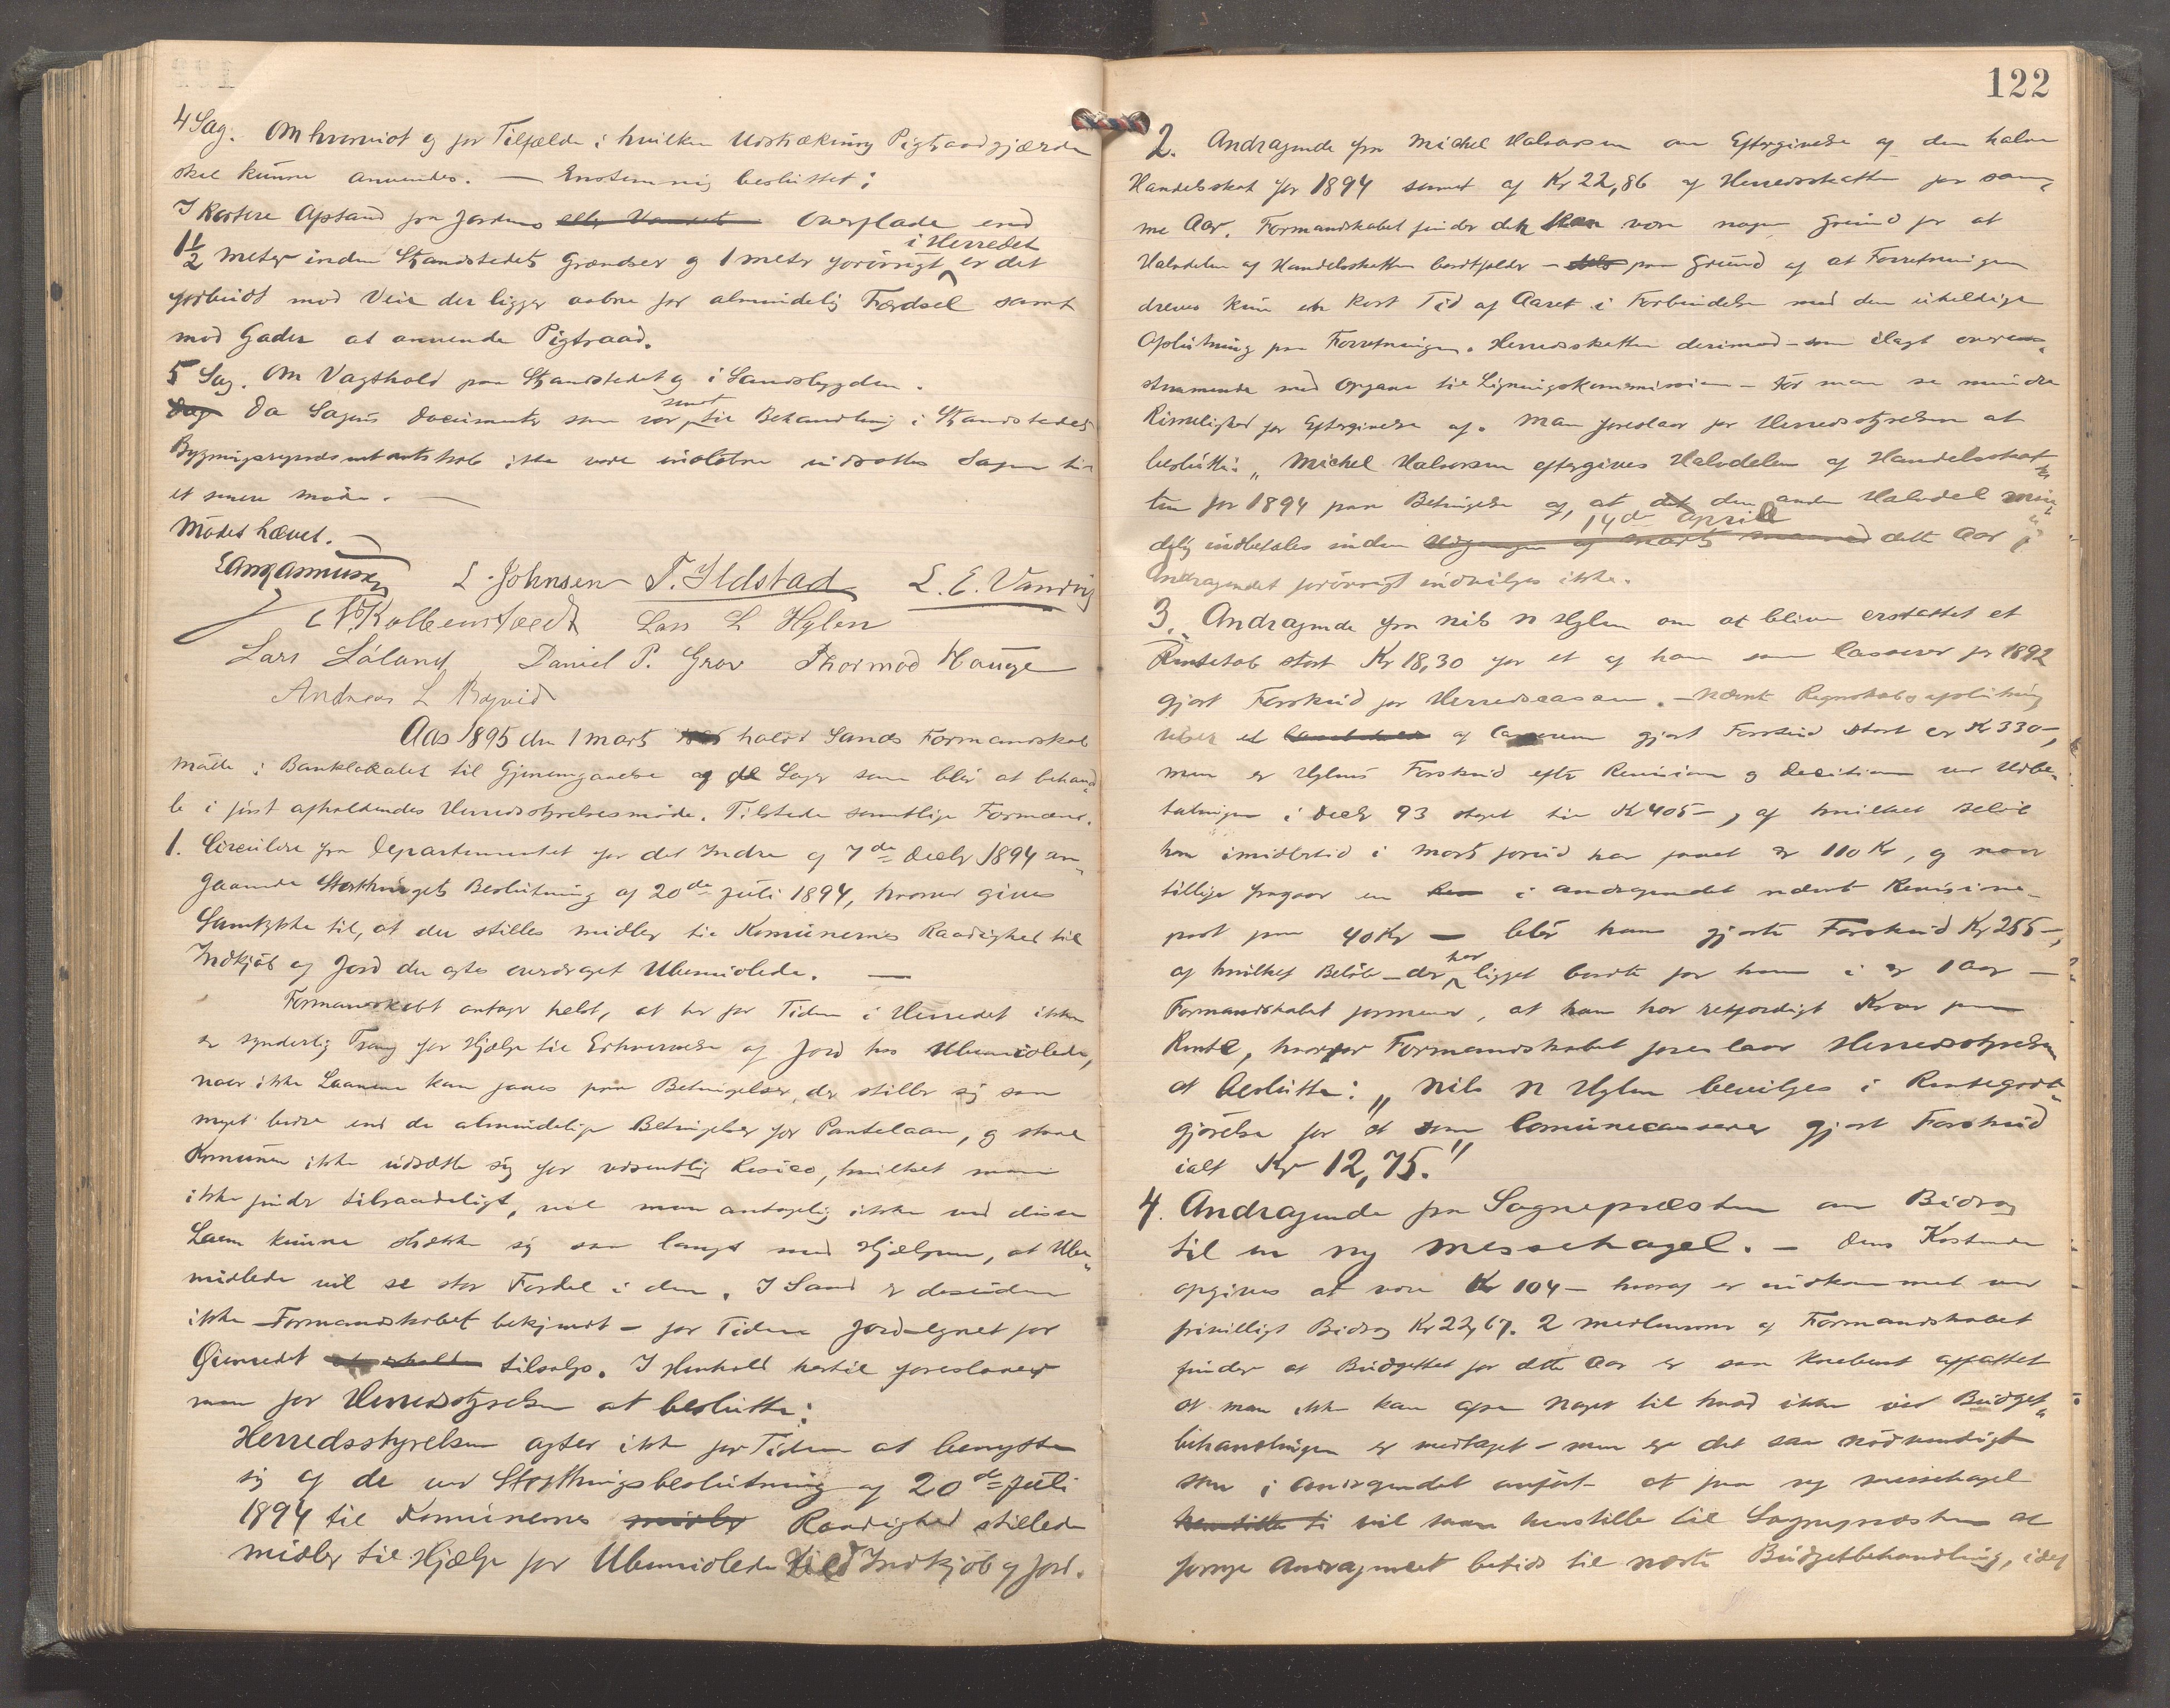 4 Sag. Om hvorvidt og for Tilfælde i hvilken Udstrækning Pigtraadgjærde
skal kunne anvendes. — Enstemmig besluttet:
I kortere Afstand fra Jordens eller Vandets Overflade end
1½ meter inden Strandstedets Grændser og 1 meter forövrigt i Herredet er det
forbudt mod Veie der ligger aabne for almindelig Færdsel samt
mod Gader at anvende Pigtraad.
5 Sag. Om Vagthold paa Strandstedet og i Landsbygden.
Da Sagens Documenter som var sendt til Behandling i Strandstedets
Bygningsrepræsentantskab ikke vare indkomne udsattes Sagen til
et senere möde. —
Mödet hævet. —
L. Johnsen T. Ildstad L. E. Vandvig
Lars L Hylen
Lars Löland Daniel P. Grov Thormod Hauge
Andreas L
Aar 1895 den 1 marts holdt Sands Formandskab
möde i Banklokalet til Gjennemgaaelse af de Sager som blir at behand-
le i först afholdendes Herredsstyrelsesmöde. Tilstede samtlige Formænd.
1. Circulære fra Departementet for det Indre af 7de Decbr 1894 an-
gaaende Storthingets Beslutning af 20de Juli 1894, hvorved gives
Samtykke til, at der stilles midler til Komunernes Raadighed til
Indkjöb af Jord der agtes overdraget Ubemidlede. —
Formandskabet antager helst, at her for Tiden i Herredet ikke
er synderlig Trang for Hjælp til Erhvervelse af Jord hos Ubemidlede,
naar ikke Laanene kan faaes paa Betingelser, der stiller sig saa
meget bedre end de almindelige Betingelser for Pantelaan, og skal
Komunen ikke udsætte sig for væsentlig Risico, hvilket man
ikke finder tilraadeligt, vil man antagelig ikke ved disse
Laan kunne strække sig saa langt med Hjælpen, at Ube-
midlede vil se stor Fordel i dem. I Sand er desuden
ikke – Formandskabet bekjendt – for Tiden Jord egnet for
Öiemedet tilsalgs. I Henhold hertil foreslaaes
man for Herredsstyrelsen at beslutte:
Herredsstyrelsen agter ikke for Tiden at benytte
sig af de ved Storthingsbeslutning af 20de Juli
1894 til Komunernes midler Raadighed stillede
midler til Hjælp for Ubemidlede til Indkjöb af Jord.
122
2. Andragende fra Michel Halvorsen om Eftergivelse af den halve
Handelsskat for 1894 samt af Kr 22,86 af Herredsskatten for sam-
me Aar. Formandskabet finder det kan være nogen Grund for at
Halvdelen af Handelsskatten bortfalder – paa Grund af at Forretningen
dreves kun en kort Tid af Aaret i Forbindelse med den uheldige
Afslutning paa Forretningen. Herredsskatten derimod – som ilagt overens-
stemmende med Opgave til Ligningskommissionen – tör man se mindre
Rimelighed for Eftergivelse af. Man foreslaar for Herredsstyrelsen at
beslutte: „Michel Halvorsen eftergives Halvdelen af Handelsskat-
ten for 1894 paa Betingelse af, at det den anden Halvdel min-
delig indbetales inden Udgangen af Marts maaned 14de April dette Aar"
Andragendet forövrigt indvilges ikke.
3. Andragende fra Nils N Hylen om at blive erstattet et
Rentetab stort Kr 18,30 for et af ham som Casserer for 1892
gjort Forskud for Herredscassen. – Nævnte Regnskabsafslutning
viser et af Casseren gjort Forskud stort er Kr 330–,
men er Hylens Forskud efter Revision og Decision ved Udbe-
talingen i Decbr 93 steget til Kr 405–, af hvilket Belöb
han imidlertid i Marts forud har faaet er 110 Kr, og naar
tillige fragaar en i Andragendet nævnt Revisions-
post paa 40 Kr — blir hans gjorte Forskud Kr 255–,
af hvilket Belöb – der har ligget borte for ham i er 1 Aar –
Formandskabet formener, at han har retfærdigt Krav paa
Rente, hvorfor Formandskabet foreslaar Herredsstyrelsen
at beslutte: „Nils N Hylen bevilges i Rentegodt-
gjörelse for et som Comunecasserer gjort Forskud
ialt Kr 12,75."
4. Andragende fra Sognepræsten om Bidrag
til en ny Messehagel. – Dens Kostende
opgives at være Kr 104 – hvoraf er indkommet ved
frivilligt Bidrag Kr 22,67. 2 medlemmer af Formandskabet
finder at Budgettet for dette Aar er saa knebent affattet
at man ikke kan afse Noget til hvad ikke ved Budget-
behandlingen er medtaget – men er det saa nödvendigt
som i Andragendet anfört at faa ny messehagel
henstille ti vil man henstille til Sognepræsten at
fornye Andragendet betids til næste Budgetbehandling, idet